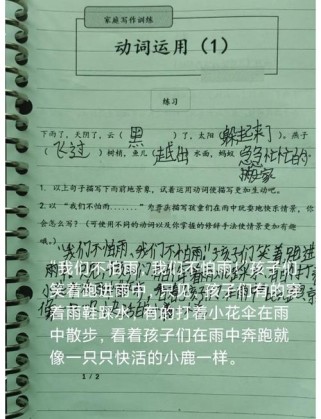 家庭写作训练
动词运用（1）
练习
下雨了，天阴了，云（黑）了，太阳（躲起来了），燕子
（飞过）树梢，鱼儿（越出）水面，蚂蚁（急急忙忙的
搬家
1. 以上句子描写下雨前地景象，试着运用动词使描写更加生动吧。
2. 以“我们不怕雨……”为开头描写孩童们在雨中玩耍地快乐情景，你
会怎么写？（可使用不同的动词以及你掌握的修辞手法使情景更加有趣
“我们不怕雨，我们不怕雨”孩子们笑着跑进
“我们不怕雨，我们不怕雨”，孩子们
笑着跑进雨中，只见：孩子们有的穿
着雨鞋踩水，有的打着小花伞在雨
中散步，看着孩子们在雨中奔跑就
像一只只快活的小鹿一样。
1 / 2